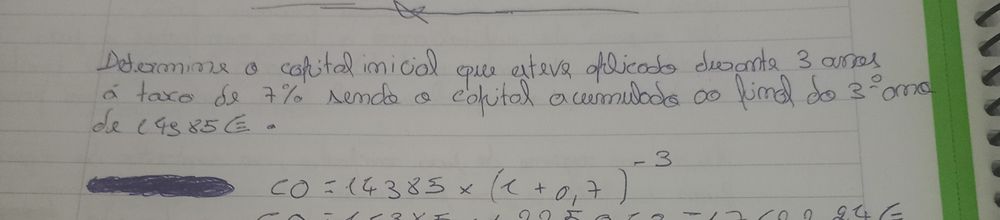 Determine o capital inicial que esteve aplicado durante 3 anos
á taxa de 7% sendo o capital acumulado ao final do 3º ano
de 14385€.
C0 = 14385 × (1 + 0,7)^-3